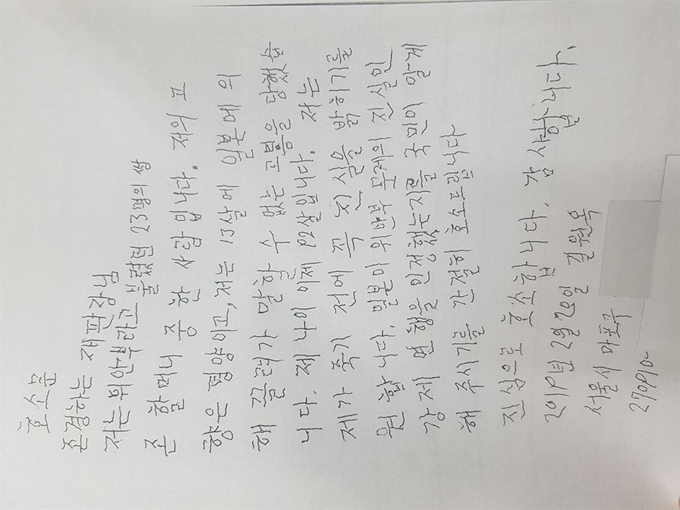 호소문
존경하는 재판장님
저는 위안부라고 불렸던 23명의 생
존 할머니 중 한 사람 입니다. 저의 고
향은 평양이고, 저는 13살에 일본에 의
해 끌려가 말할 수 없는 고통을 당했습
니다. 제 나이 이제 92살입니다. 저는
제가 죽기 전에 꼭 진실을 밝히기를
원합니다. 일본이 위안부 문제의 진실인
강제 연행을 인정했는지를 국민이 알게
해 주시기를 간절히 호소드립니다
진심으로 호소합니다. 감사합니다.
2019년 2월 20일 길원옥
서울시 마포구
270910-